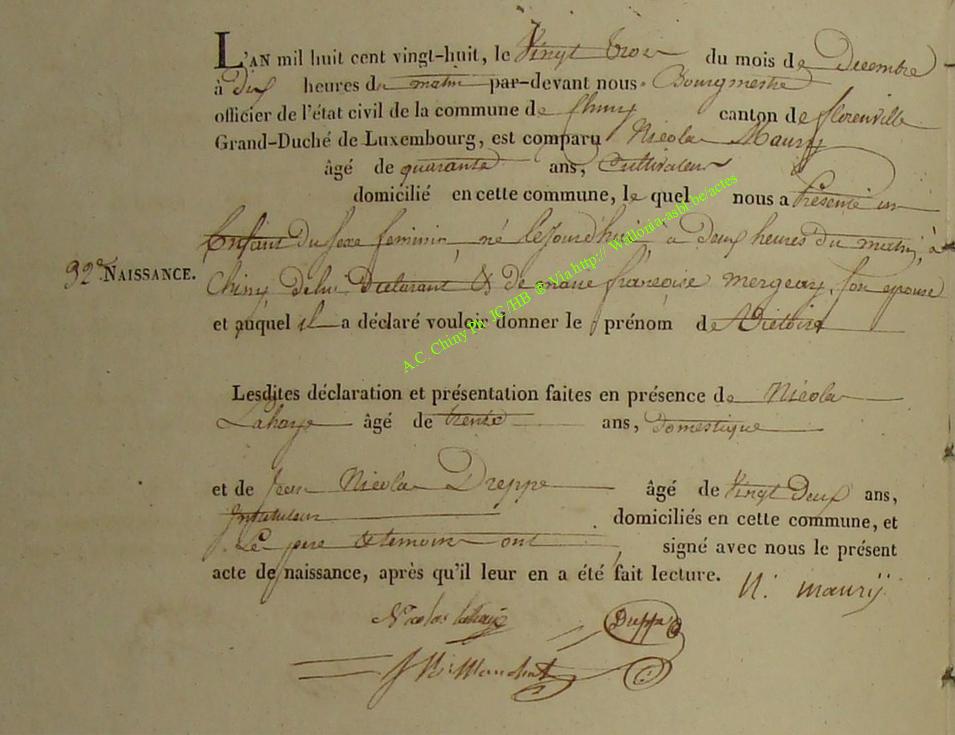 L'AN mil huit cent vingt-huit, le Vingt trois du mois de Decembre
à dix heures du matin par-devant nous Bourgmestre
officier de l'état civil de la commune de Chiny canton de florenville
Grand-Duché de Luxembourg, est comparu Nicolas Maury
âgé de quarante ans, Cultivateur
domicilié en cette commune, le quel nous a Présenté un
Enfant du sexe feminin, né le jourd'hui a deux heures du matin, à
92e NAISSANCE. Chiny de lui Déclarant & de marie françoise mergeay, son epouse
et auquel il a déclaré vouloir donner le prénom de Victoire
Lesdites déclaration et présentation faites en présence de Nicolas
Lahaye âgé de trente ans, domestique
et de Jean Nicolas Dreppe âgé de Vingt Deux ans,
Instituteur domiciliés en cette commune, et
Le pere & temoins ont signé avec nous le présent
acte de naissance, après qu'il leur en a été fait lecture. N. maury
Nicolas lahaye Dreppe
A.C. Chiny Pr. IC/HB ® Via http:// Wallonia-asbl.be/actes